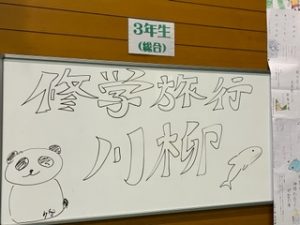 3年生
(総合)
修学旅行
川柳